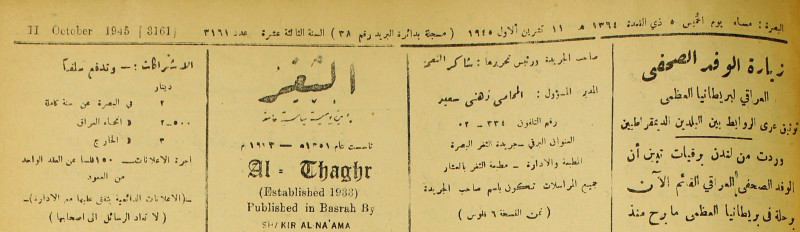 البصرة: مساء يوم الخميس ٥ ذي القعدة ١٣٦٤ هـ ١١ تشرين الاول ١٩٤٥ ( مسجلة بدائرة البريد رقم ٣٨ ) السنة الثالثة عشرة عدد ٣١٦١ 11 October 1945 [3161]
زيارة الوفد الصحفي
العراقي لبريطانيا العظمى
توثيق عرى الروابط بين البلدين الديمقراطيين
وردت من لندن برقيات تبين أن
الوفد الصحفي العراقي القائم الآن
برحلة في بريطانيا العظمى ما برح منذ
صاحب الجريدة ورئيس تحريرها: شاكر النعمة
المدير المسؤول: المحامي زهني سعيد
رقم التلفون ٣٣٤ — ٠٢
العنوان البرقي — جريدة الثغر البصرة
المطبعة والادارة — مطبعة الثغر بالعشار
جميع المراسلات تكون باسم صاحب الجريدة
( ثمن النسخة ٦ فلوس )
الثغر
جريدة يومية سياسية عامة
تأسست عام ١٣٥١هـ — ١٩٣٣ م
Al - Thaghr
(Established 1933)
Published in Basrah By
SHAKIR AL-NA'AMA
الاشتراكات: — وتدفع سلفاً
دينار
٢ في البصرة عن سنة كاملة
٢—٥٠٠ » انحاء العراق
٣ في الخارج
اجرة الاعلانات — ١٥٠ فلسا عن العقد الواحد
من العمود
—(الاعلانات الدائمية يتفق عليها مع الادارة)—
( لا تعاد الرسائل الى اصحابها )